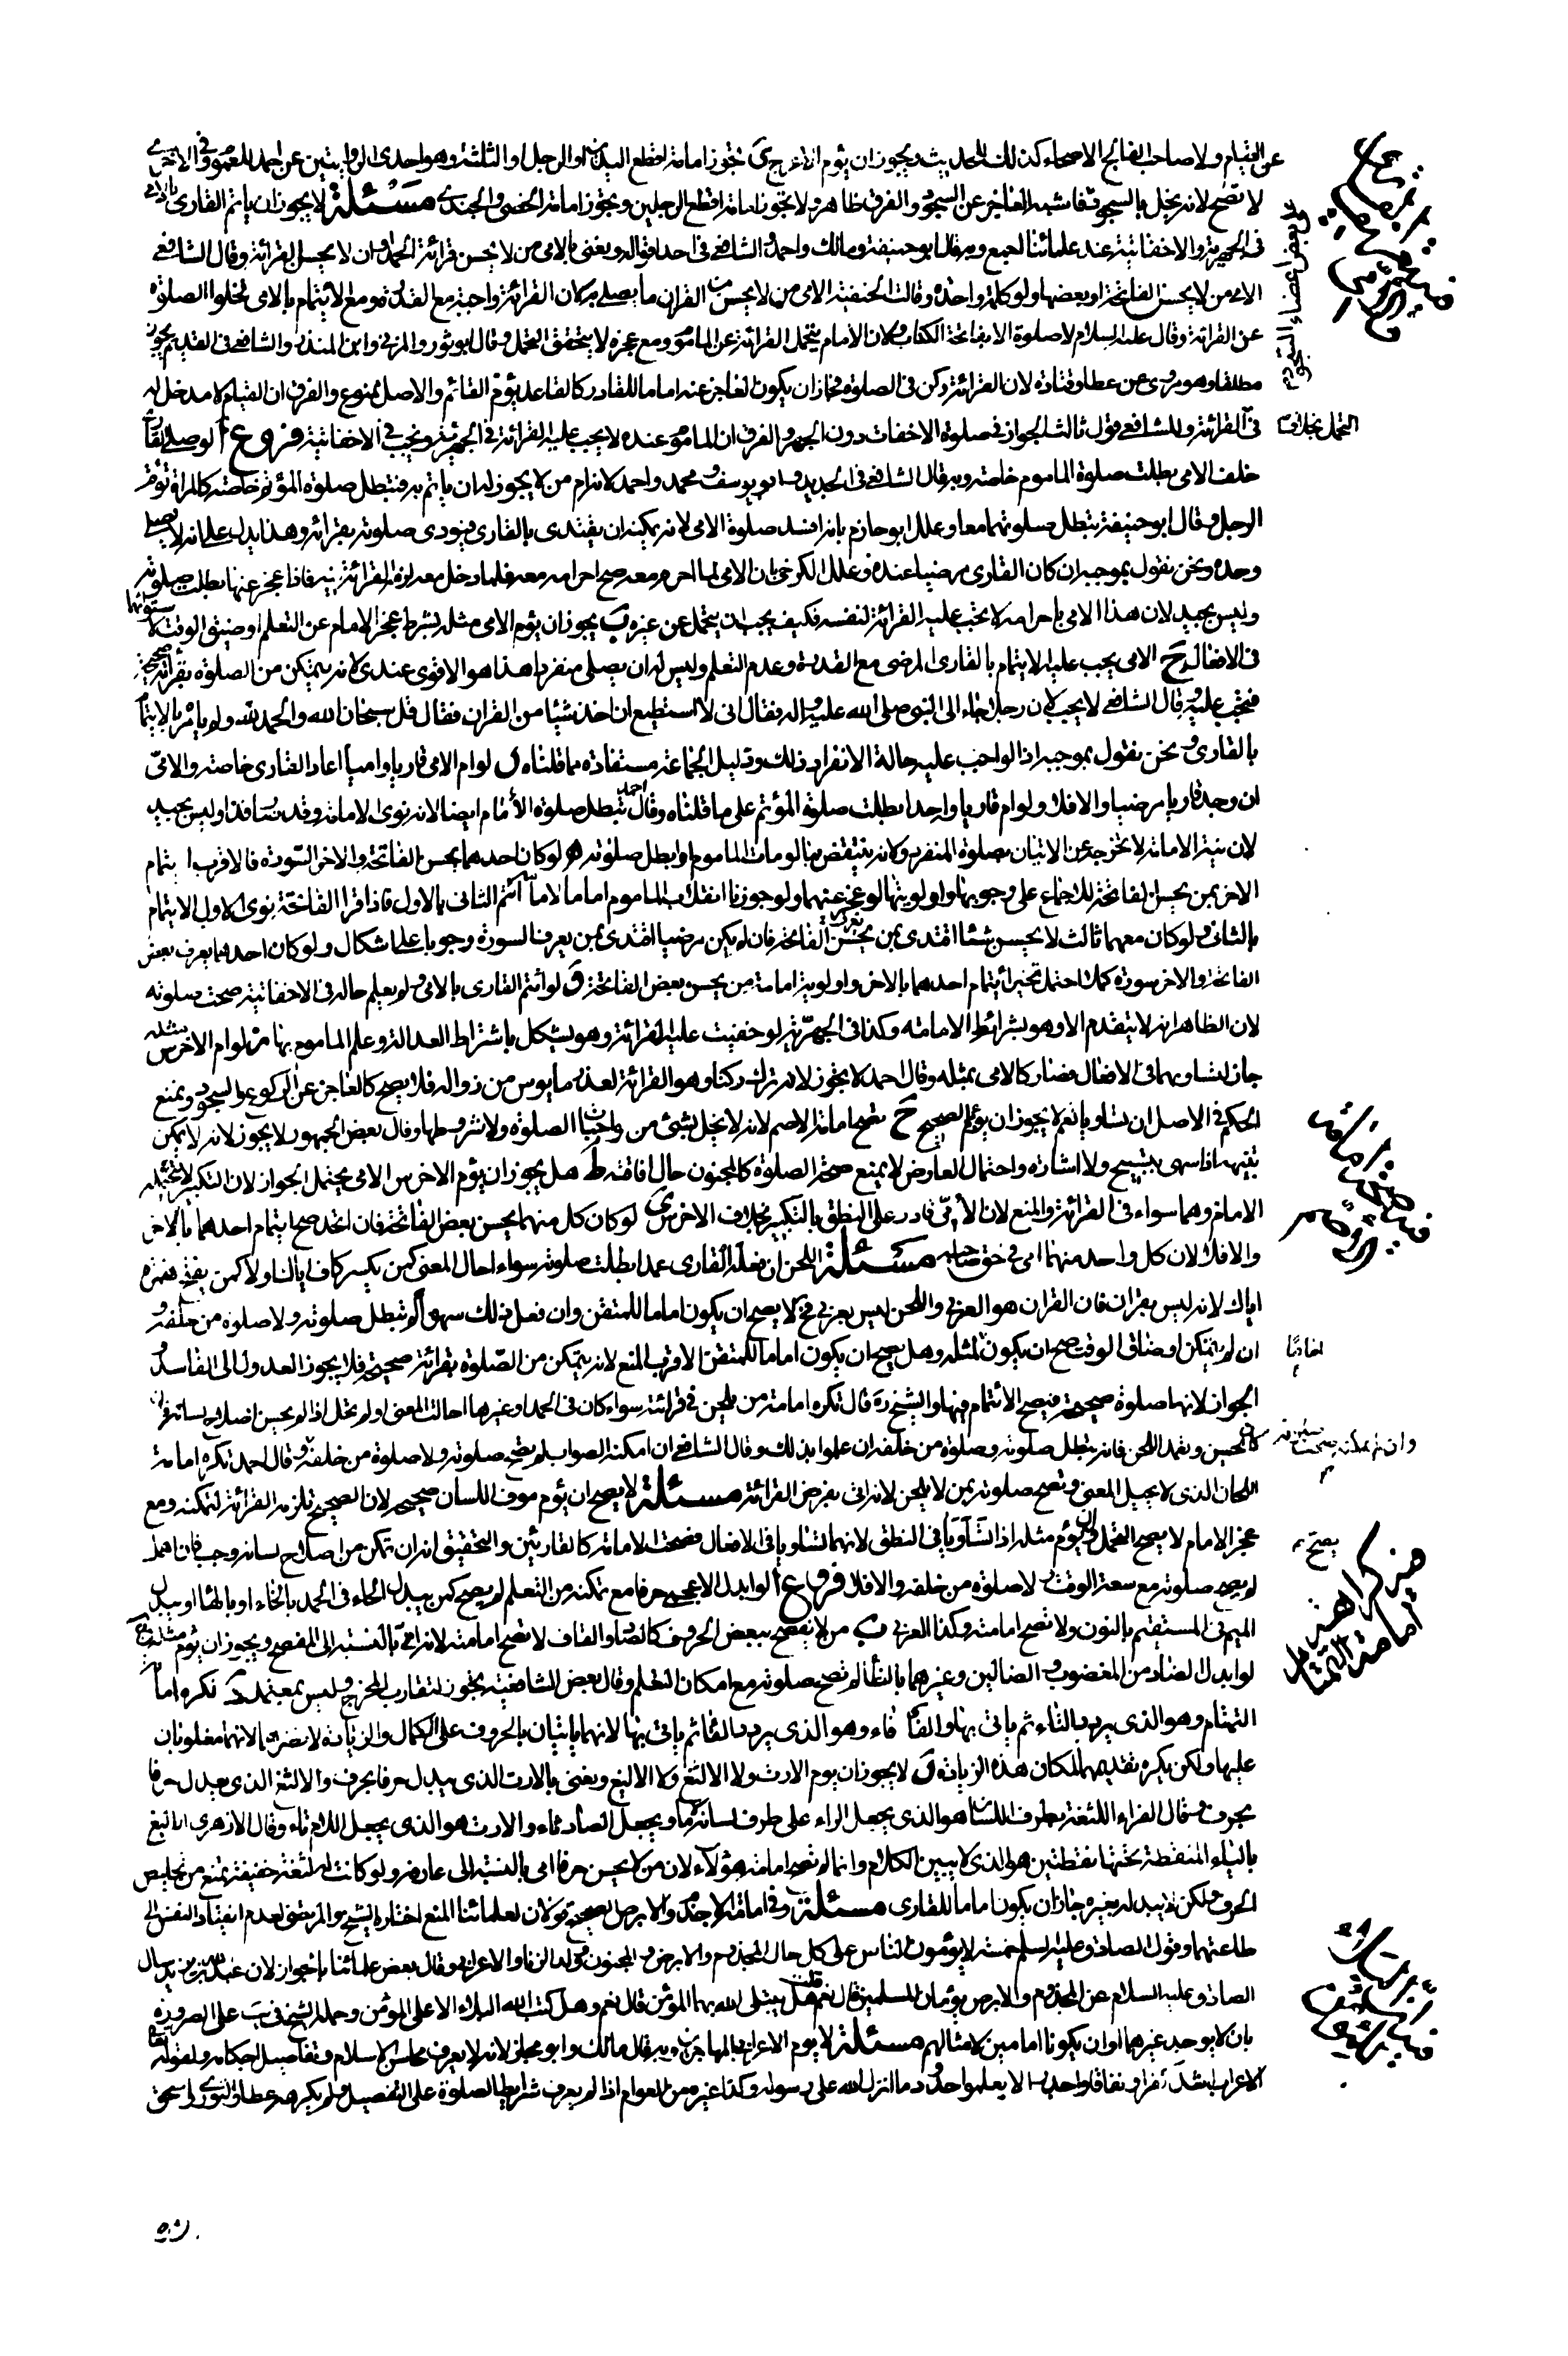 عن القيام ولا صاحب الفالج الاصحاء كذلك للحديث يجوز ان يؤم الاعرج ى تجوز امامة اقطع اليدين او الرجل او الثلثة وهو احدى الروايتين عن احمد للعموم وفي الاخرى
لا تصح لانه يخل بالسجود فاشبه العاجز عن السجود والفرق ظاهر ولا تجوز امامة اقطع الرجلين وتجوز امامة الخصى والجندى مسئلة لا يجوز ان ياتم القارى بالامى
فى الجهرية والاخفاتية عند علمائنا اجمع وبه قال ابو حنيفة ومالك واحمد والشافعى فى احد اقواله ونعنى بالامى من لا يحسن قرائة الحمد وان لا يحسن القرائة وقال الشافعى
الامى من لا يحسن الفاتحة او بعضها ولو كلمة واحدة وقالت الحنفية الامى من لا يحسن من القران ما يصلى به لان القرائة واجبة مع القدرة ومع الايتمام بالامى تخلو الصلوة
عن القرائة وقال عليه السلام لا صلوة الا بفاتحة الكتاب ولان الامام يتحمل القرائة عن الماموم ومع عجزه لا يتحقق التحمل وقال ابو ثور والمزنى وابن المنذر والشافعى فى القديم يجوز
مطلقا وهو مروى عن عطا وقتادة لان القرائة ركن فى الصلوة فجاز ان يكون العاجز عنه اماما للقادر كالقاعد يؤم القائم والاصل ممنوع والفرق ان القيام لا مدخل له
فى القرائة وللشافعى قول ثالث الجواز فى صلوة الاخفات دون الجهر والفرق ان الماموم عنده لا يجب عليه القرائة فى الجهرية وتجب فى الاخفاتية فروع ا لو صلى القارى
خلف الامى بطلت صلوة الماموم خاصة وبه قال الشافعى فى الجديد وابو يوسف ومحمد واحمد لانه ام من لا يجوز له ان ياتم به فتبطل صلوة المؤتم خاصة كالمراة تؤم
الرجل وقال ابو حنيفة تبطل صلوتهما معا وعلل ابو حازم بانه افسد صلوة الامى لانه يمكنه ان يقتدى بالقارى فيودى صلوته بقرائة وهذا يدل على انه لا يصلى
وحده ونحن نقول بموجبه ان كان القارى مرضيا عنده وعلل الكرخى بان الامى لما احرم معه صح احرامه معه فلما دخل معه لزمه القرائة فيه فاذا عجز عنها بطلت صلوته
وليس بجيد لان هذا الامى باحرامه لا تجب عليه القرائة لنفسه فكيف يجب ان يتحمل عن غيره ب يجوز ان يؤم الامى مثله بشرط عجز الامام عن التعلم او ضيق الوقت لاستوائهما
فى الافعال ج الامى يجب عليه الايتمام بالقارى المرضى مع القدرة وعدم التعلم وليس له ان يصلى منفردا هذا هو الاقوى عندى لانه يتمكن من الصلوة بقرائة صحيحة
فتجب عليه وقال الشافعى لا يجب لان رجلا جاء الى النبى صلى الله عليه واله فقال انى لا استطيع ان اخذ شيئا من القران فقال قل سبحان الله والحمد لله ولم يامره بالايتمام
بالقارى ونحن نقول بموجبه اذ الواجب عليه حالة الانفراد ذلك ودليل الجماعة مستفادة مما قلناه د لو ام الامى قاريا واميا اعاد القارى خاصة والامى
ان وجد قاريا مرضيا والا فلا ولو ام قاريا واحدا بطلت صلوة المؤتم على ما قلناه وقال احمد تبطل صلوة الامام ايضا لانه نوى الامامة وقد فسد وليس بجيد
لان نية الامامة لا تخرجه عن الاتيان بصلوة المنفرد ولانه ينتقض بما لو مات الماموم او بطل صلوته ه لو كان احدهما يحسن الفاتحة والاخر السورة فالاقرب ايتمام
الاخر بمن يحسن الفاتحة للاجماع على وجوبها واولويتها لو عجز عنهما ولو جوزنا انقلاب الماموم اماما لامامه ائتم الثانى بالاول فاذا قرا الفاتحة نوى الاول الايتمام
بالثانى و لو كان معهما ثالث لا يحسن شئا اقتدى بمن يحسن الفاتحة فان لم يكن مرضيا اقتدى بمن يعرف السورة وجوبا على اشكال ولو كان احدهما يعرف بعض
الفاتحة والاخر سورة كملا احتمل تخير ايتمام احدهما بالاخر واولوية امامة من يحسن بعض الفاتحة و لو ائتم القارى بالامى ولم يعلم حاله فى الاخفاتية صحت صلوته
لان الظاهر انه لا يتقدم الا وهو بشرائط الامامة وكذا فى الجهرية لو خفيت عليه القرائة وهو يشكل باشتراط العدالة وعلم الماموم بها ز لو ام الاخرس مثله
جاز لتساويهما فى الافعال فصار كالامى بمثله وقال احمد لا يجوز لانه ترك ركنا وهو القرائة لعذر مايوس من زواله فلا يصح كالعاجز عن الركوع والسجود ونمنع
الحكم فى الاصل ان تساويا نعم لا يجوز ان يؤم الصحيح ح تصح امامة الاصم لانه لا يخل بشئ من واجبات الصلوة ولا شروطها وقال بعض الجمهور لا يجوز لانه لا يمكن
تنبيهه اذا سهى بتسبيح ولا اشارة واحتمال العارض لا يمنع صحة الصلوة كالمجنون حال افاقته ط هل يجوز ان يؤم الاخرس الامى يحتمل الجواز لان التكبير لا يتحمله
الامام وهما سواء فى القرائة والمنع لان الامى قادر على النطق بالتكبير بخلاف الاخرس ى لو كان كل منهما يحسن بعض الفاتحة فان اتحد صح ايتمام احدهما بالاخر
والا فلا لان كل واحد منهما امى فى حق صاحبه مسئلة اللحن ان تعمله القارى عمدا بطلت صلوته سواء احال المعنى كمن يكسر كاف اياك اولا كمن يفتح همزة
اياك لانه ليس بقران فان القران هو العربى واللحن ليس بعربى فح لا يصح ان يكون اماما للمتقن وان فعل ذلك سهوا لم تبطل صلوته ولا صلوة من خلفه
ان لم يتمكن او ضاق الوقت صح ان يكون لمثله وهل يصح ان يكون اماما للمتقن الاقرب المنع لانه يتمكن من الصلوة بقرائة صحيحة فلا يجوز العدول الى الفاسد
الجواز لانها صلوة صحيحة فيصح الائتمام فيها والشيخ ره قال تكره امامة من يلحن فى قرائته سواء كان فى الحمد او غيرها احالت المعنى او لم تحل اذا لم يحسن اصلاح لسانه فان
كان يحسن وتعمد اللحن فانه تبطل صلوته وصلوة من خلفه ان علموا بذلك وقال الشافعى ان امكنه الصواب لم تصح صلوته ولا صلوة من خلفه وقال احمد تكره امامة
اللحان الذى لا يحيل المعنى وتصح صلوته بمن لا يلحن لانه اتى بفرض القرائة مسئلة لا يصح ان يؤم موف اللسان صحيحه لان الصحيح تلزمه القرائة لتمكنه ومع
عجز الامام لا يصح التحمل وان يؤم مثله اذا تساويا فى النطق لانهما تساويا فى الافعال فصحت الامامة كالقارئين والتحقيق انه ان تمكن من اصلاح لسانه وجب فان اهمل
لم تصح صلوته مع سعة الوقت ولا صلوة من خلفه والا فلا فروع ا لو ابدل الاعجمى حرفا مع تمكنه من التعلم لم يصح كمن يبدل الحاء فى الحمد بالخاء او بالهاء او يبدل
الميم فى المستقيم بالنون ولا تصح امامته وكذا العربى ب من لا يفصح ببعض الحروف كالصاد والقاف لا تصح امامته لانه امى بالنسبة الى المفصح ويجوز ان يؤم مثله ج
لو ابدل الضاد من المغضوب والضالين وغيرهما بالظاء لم تصح صلوته مع امكان التعلم وقال بعض الشافعية يجوز لتقارب المخرج وليس بمعتمد د تكره امامة
التمتام وهو الذى يردد التاء ثم ياتى بها والفا فاء وهو الذى يردد الفا ثم ياتى بها لانهما ياتيان بالحروف على الكمال والزيادة لا تضرهما لانهما مغلوبان
عليها ولكن يكره تقديمهما لمكان هذه الزيادة ه لا يجوز ان يوم الارت ولا الالثغ ولا الاليغ ونعنى بالارت الذى يبدل حرفا بحرف والالثغ الذى يعدل حرفا
بحرف وقال الفراء اللثغة بطرف اللسان هو الذى يجعل الراء على طرف لسانه لاما ويجعل الصاد ثاء والارت هو الذى يجعل اللام تاء وقال الازهرى الاليغ
بالياء المنقطة تحتها نقطتين هو الذى لا يبين الكلام وانما لم تصح امامة هؤلاء لان من لا يحسن حرفا امى بالنسبة الى عارفه ولو كانت له لثغة خفيفة تمنع من تخليص
الحرف ولكن لا يبدله بغيره جاز ان يكون اماما للقارى مسئلة وفى امامة الاجذم والابرص بصحيح قولان لعلمائنا المنع اختاره الشيخ والمرتضى لعدم انقياد النفس الى
طاعتهما وقول الصادق عليه السلم خمسة لا يؤمون الناس على كل حال المجذوم والابرص والمجنون وولد الزنا والاعرابى وقال بعض علمائنا بالجواز لان عبد الله بن يزيد سال
الصادق عليه السلام عن المجذوم والابرص يؤمان المسلمين قال نعم قلت هل يبتلى الله بهما المؤمن قال نعم وهل كتب الله البلاء الا على المؤمن وحمله الشيخ فى يب على الضرورة
بان لا يوجد غيرهما او ان يكونا امامين لامثالهم مسئلة لا يوم الاعرابى بالمهاجرين وبه قال مالك وابو مجلز لانه لا يعرف محاسن الاسلام وتفاصيل احكامه ولقوله تعالى
الاعراب اشد كفرا ونفاقا واجدر الا يعلموا حدود ما انزل الله على رسوله وكذا غيره من العوام اذا لم يعرف شرايط الصلوة على التفصيل ولم يكرهه عطا والثورى واسحق
على بعض اعضاء السجود
التحمل بخلاف
اماما
وان لم يمكنه صحت صلوته
يصح
فى كراهة امامة التمتام